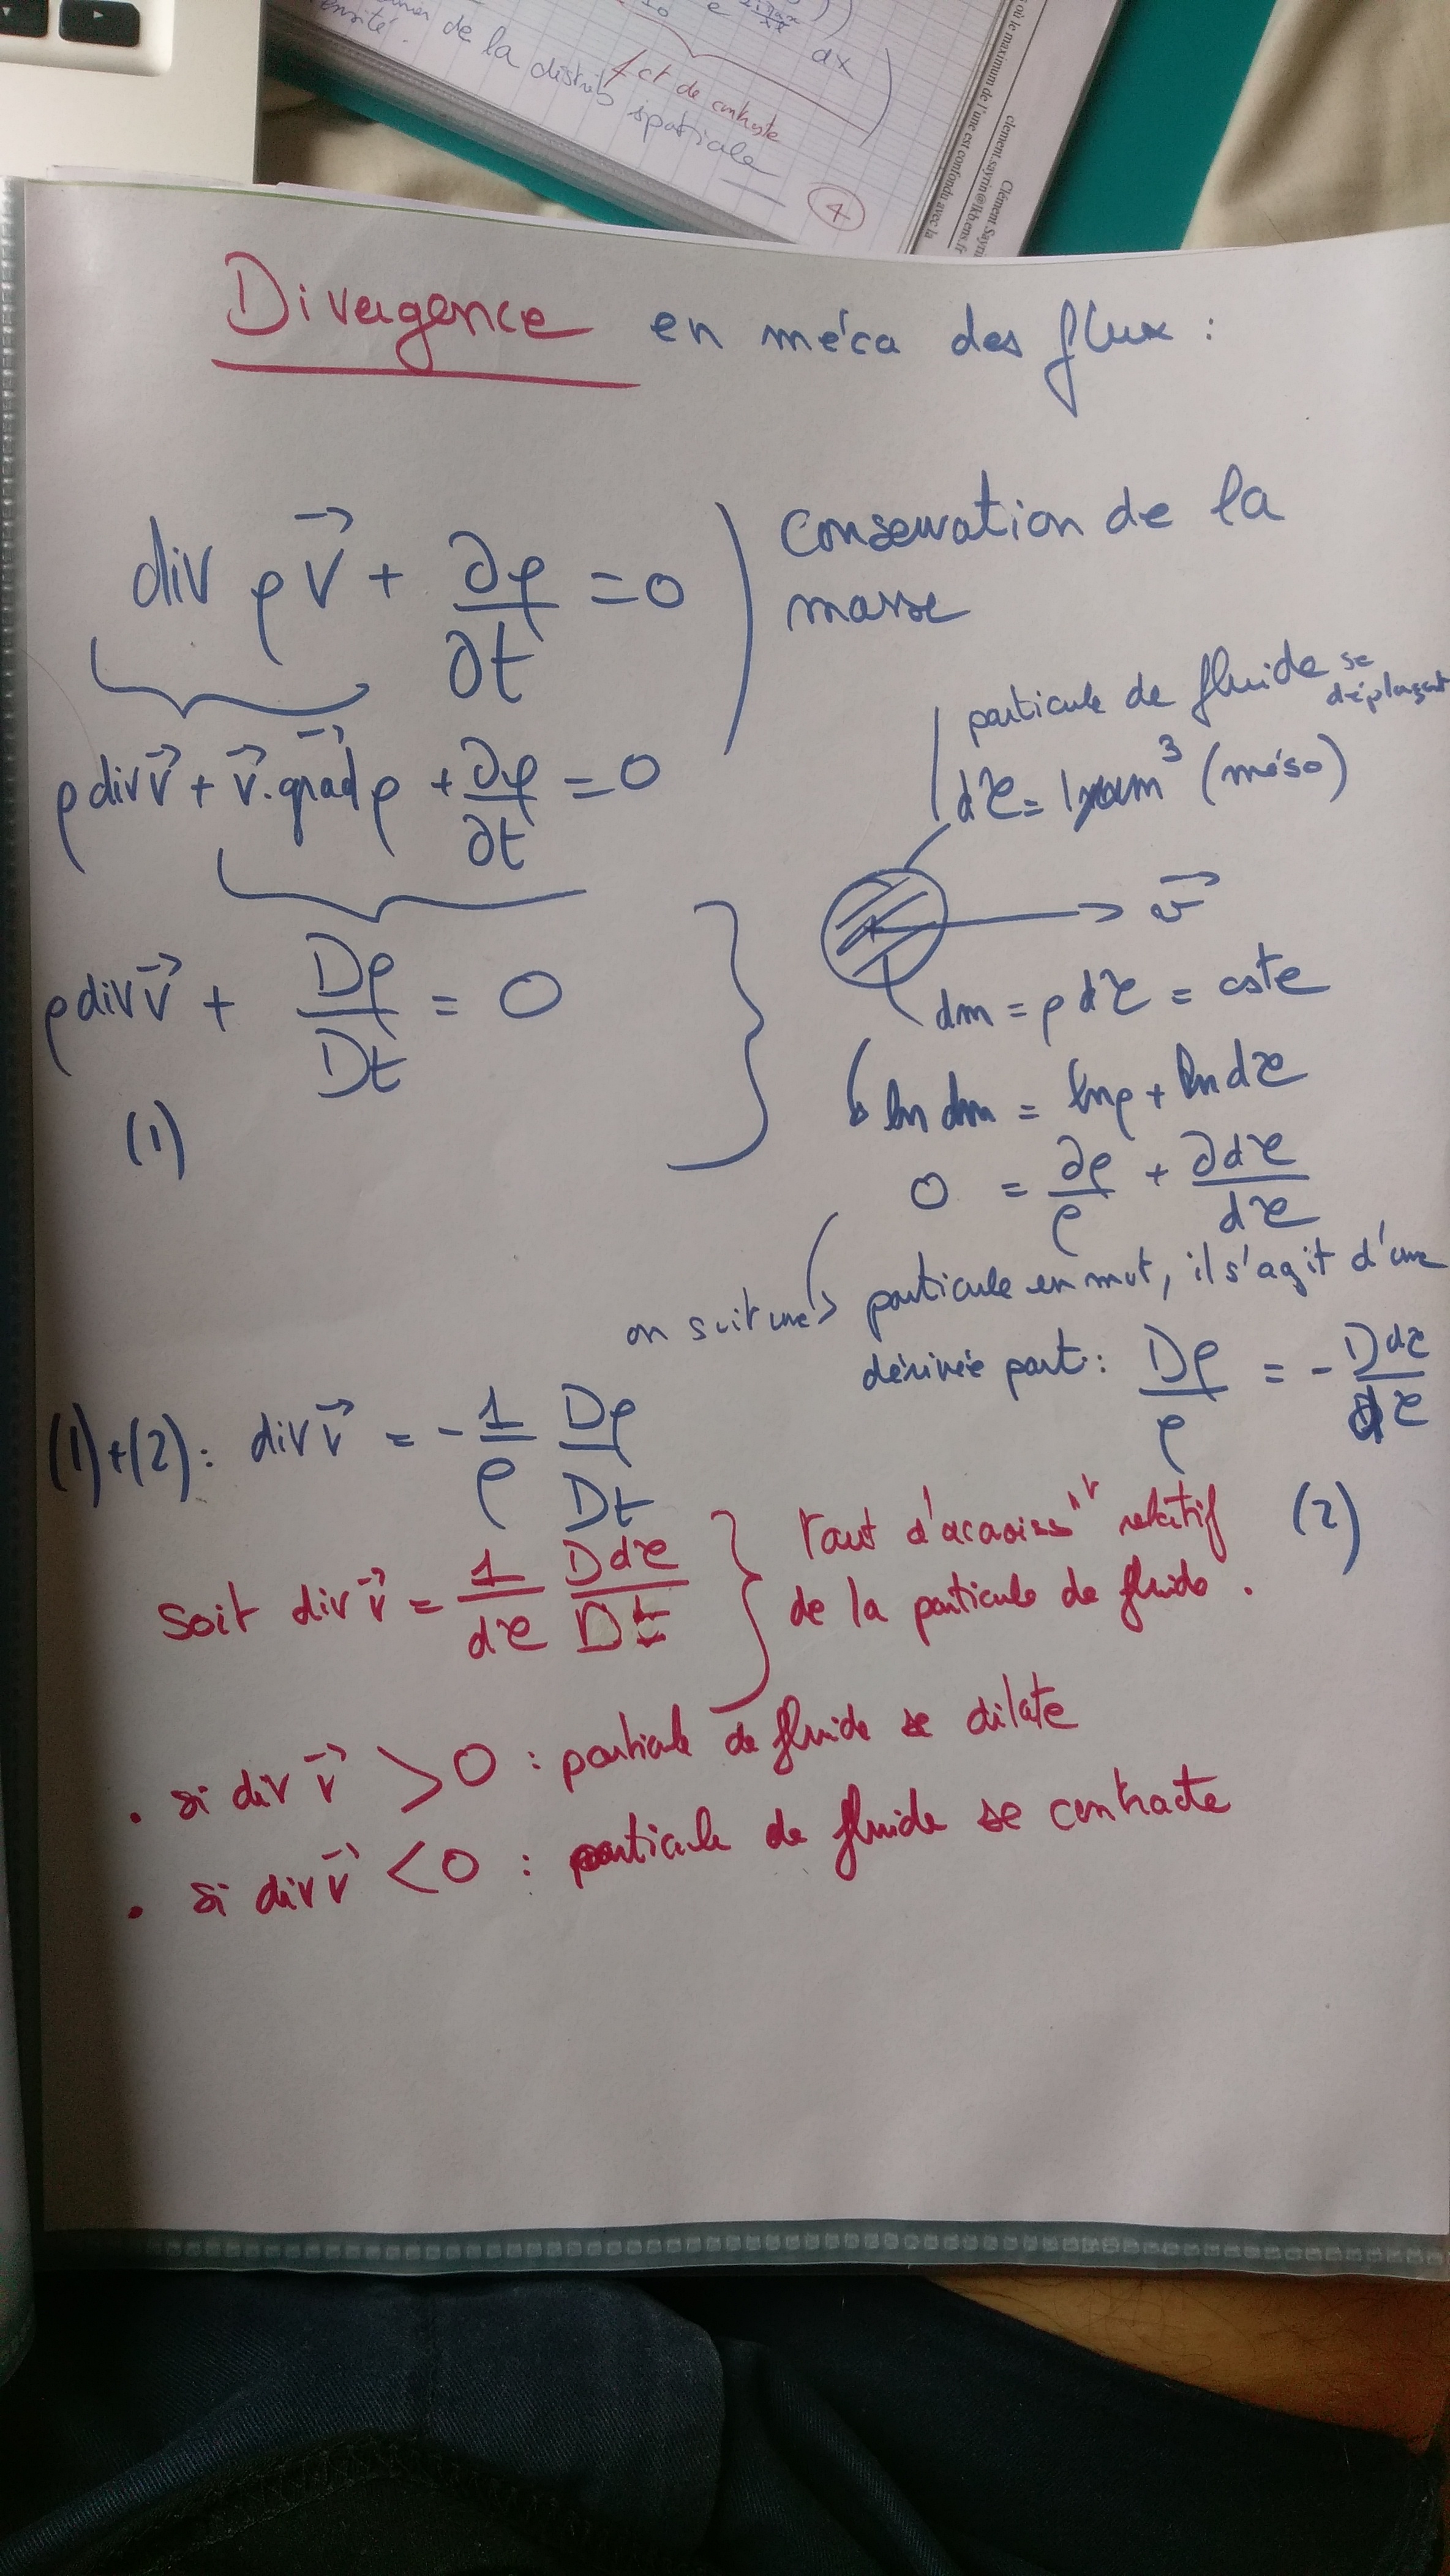 de la distrib spatiale
fct de contraste
dx
4
où le maximum de l'une est confondu avec la
clement.sayrin@lkb.ens.fr
Divergence en méca des flux :
div ρv⃗ + ∂ρ/∂t = 0
Conservation de la
masse
ρ div v⃗ + v⃗.grad⃗ ρ + ∂ρ/∂t = 0
particule de fluide se déplaçant
dτ = 1 µm³ (méso)
v⃗
ρ div v⃗ + Dρ/Dt = 0
(1)
dm = ρ dτ = cste
ln dm = lnρ + ln dτ
0 = ∂ρ/ρ + ∂dτ/dτ
on suit une particule en mvt, il s'agit d'une
dérivée part : Dρ/ρ = - Ddτ/dτ
(2)
(1)+(2) : div v⃗ = - 1/ρ Dρ/Dt
soit div v⃗ = 1/dτ Ddτ/Dt
taux d'accroissᵗ relatif
de la particule de fluide .
. si div v⃗ > 0 : particule de fluide se dilate
. si div v⃗ < 0 : particule de fluide se contracte